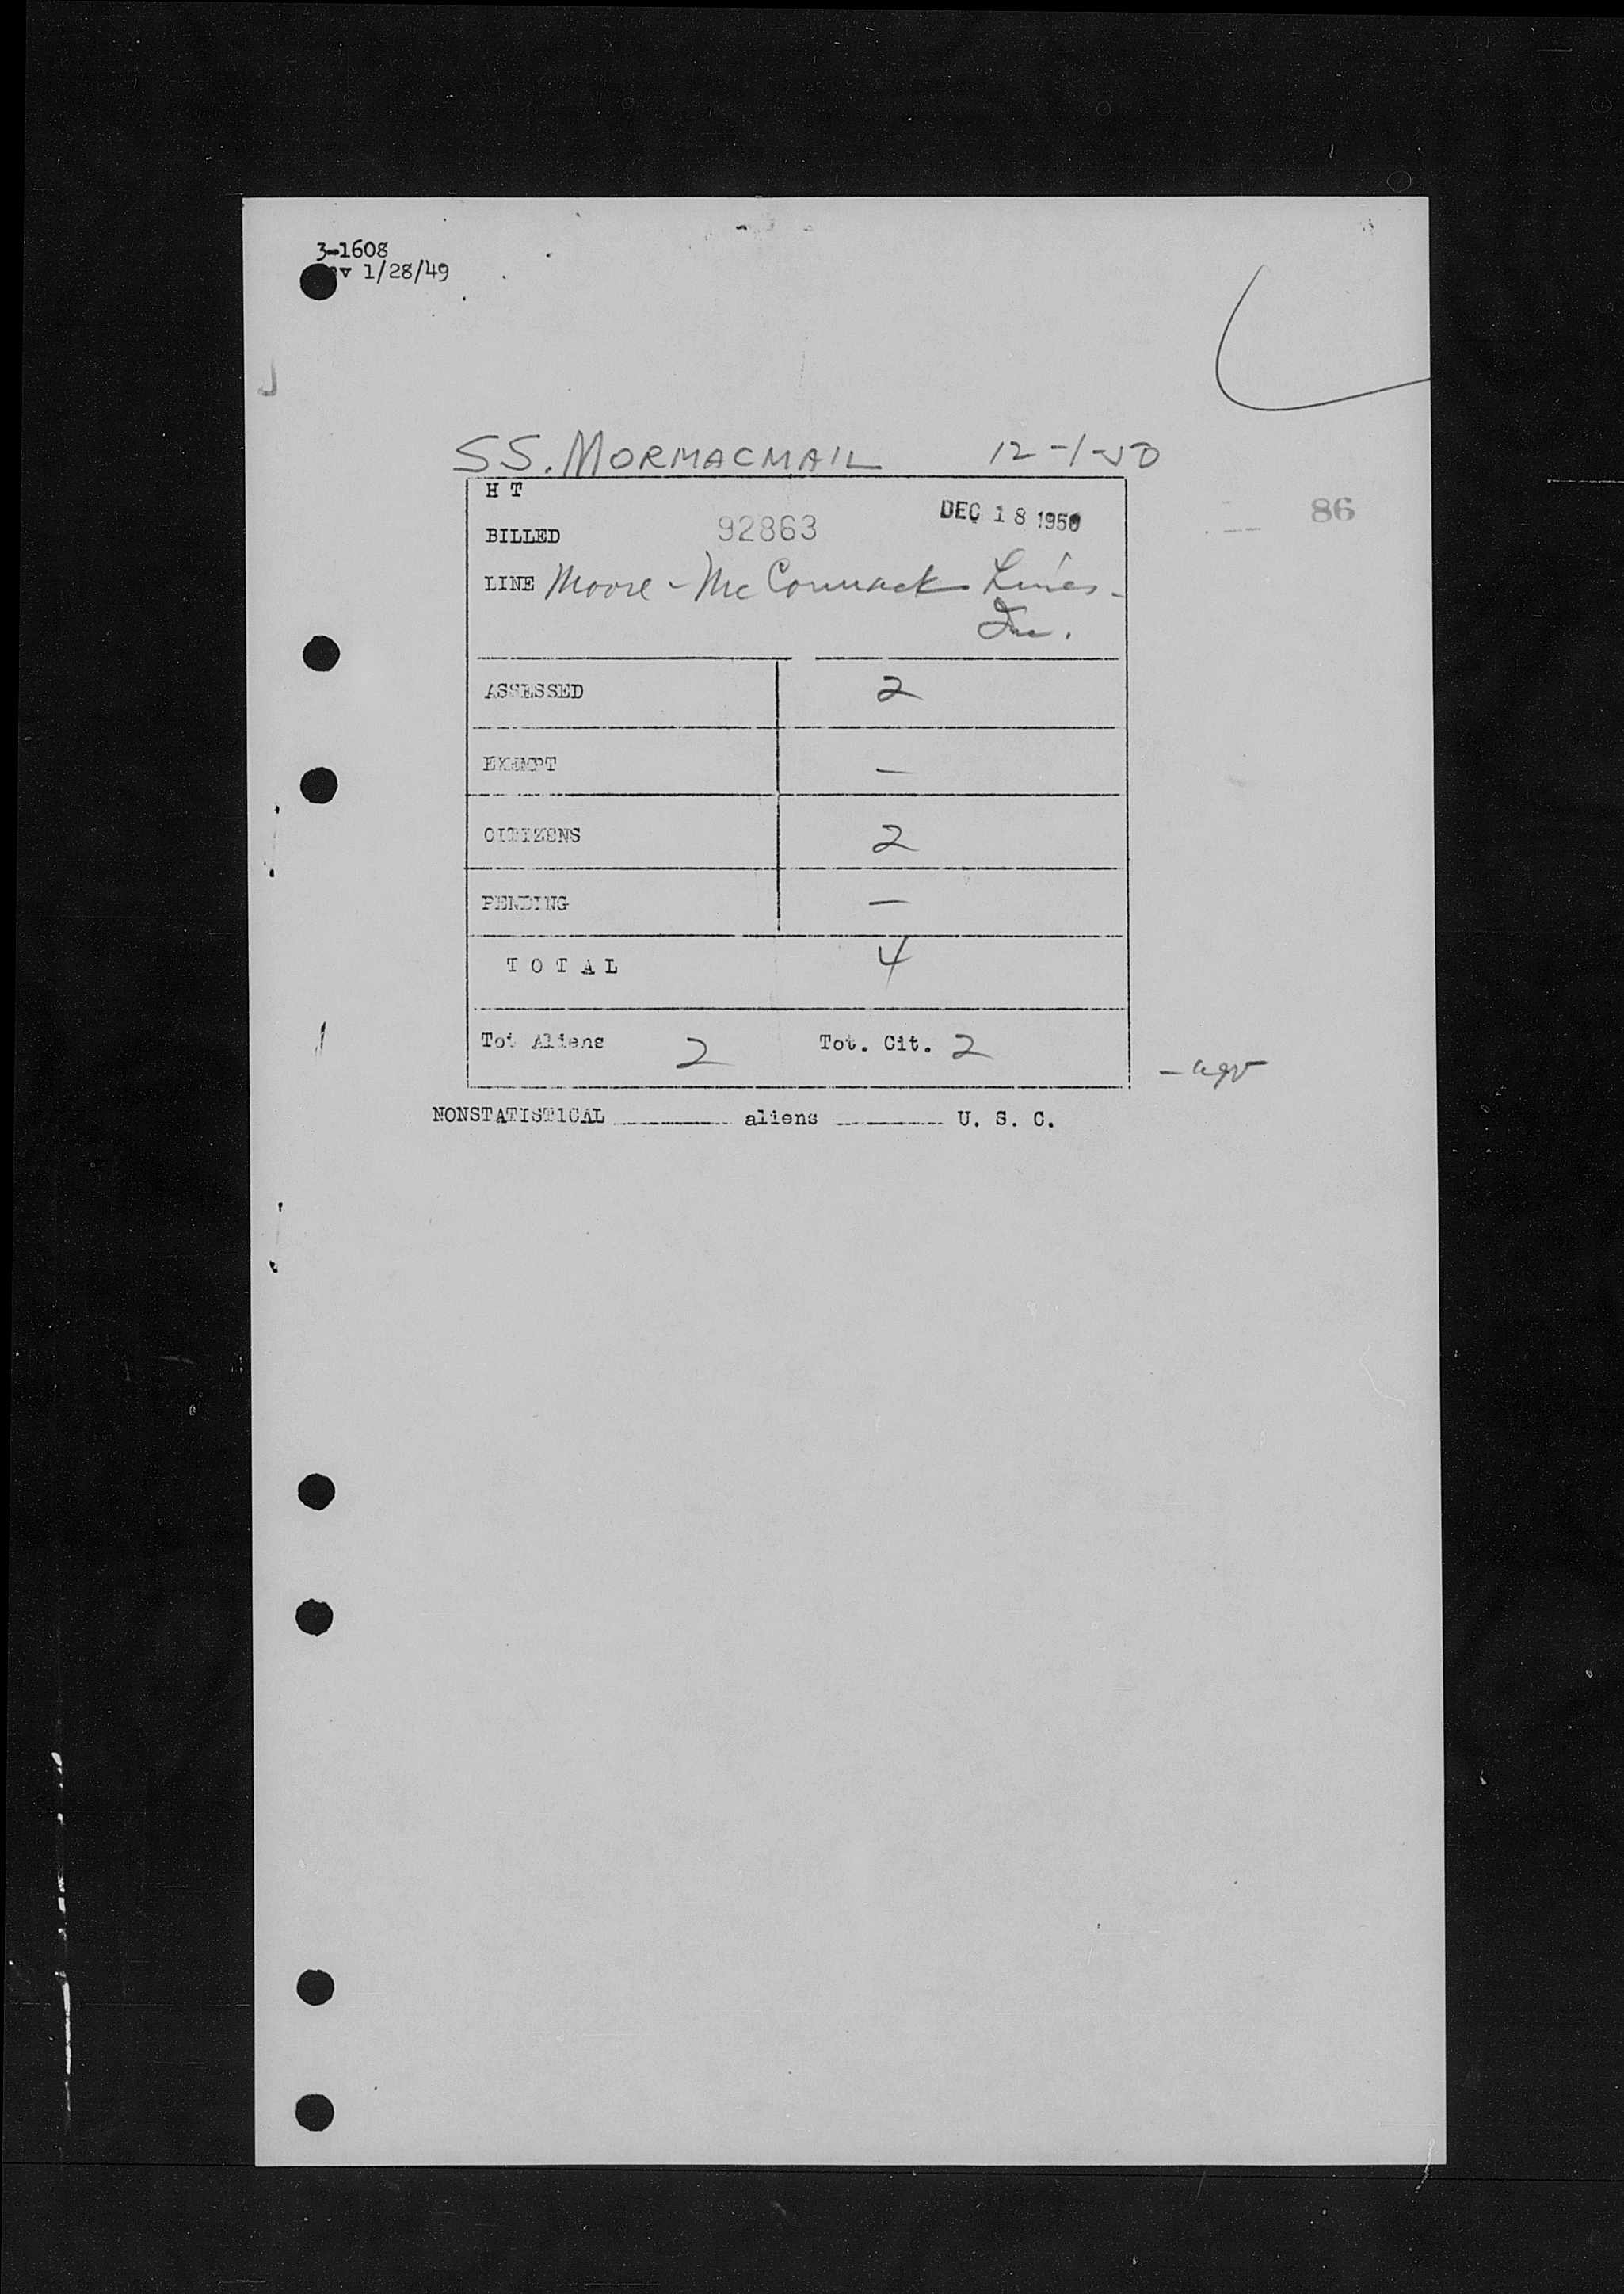 3-1608
1/28/49
SS. MORMACMAIL 12-1-50
H T
BILLED 92863 DEC 18 1950
86
LINE Moore-McCormack Lines
Inc.
ASSESSED 2
EXEMPT —
CITIZENS 2
PENDING —
T O T A L 4
Tot Aliens 2 Tot. Cit. 2
NONSTATISTICAL ______ aliens ______ U. S. C.